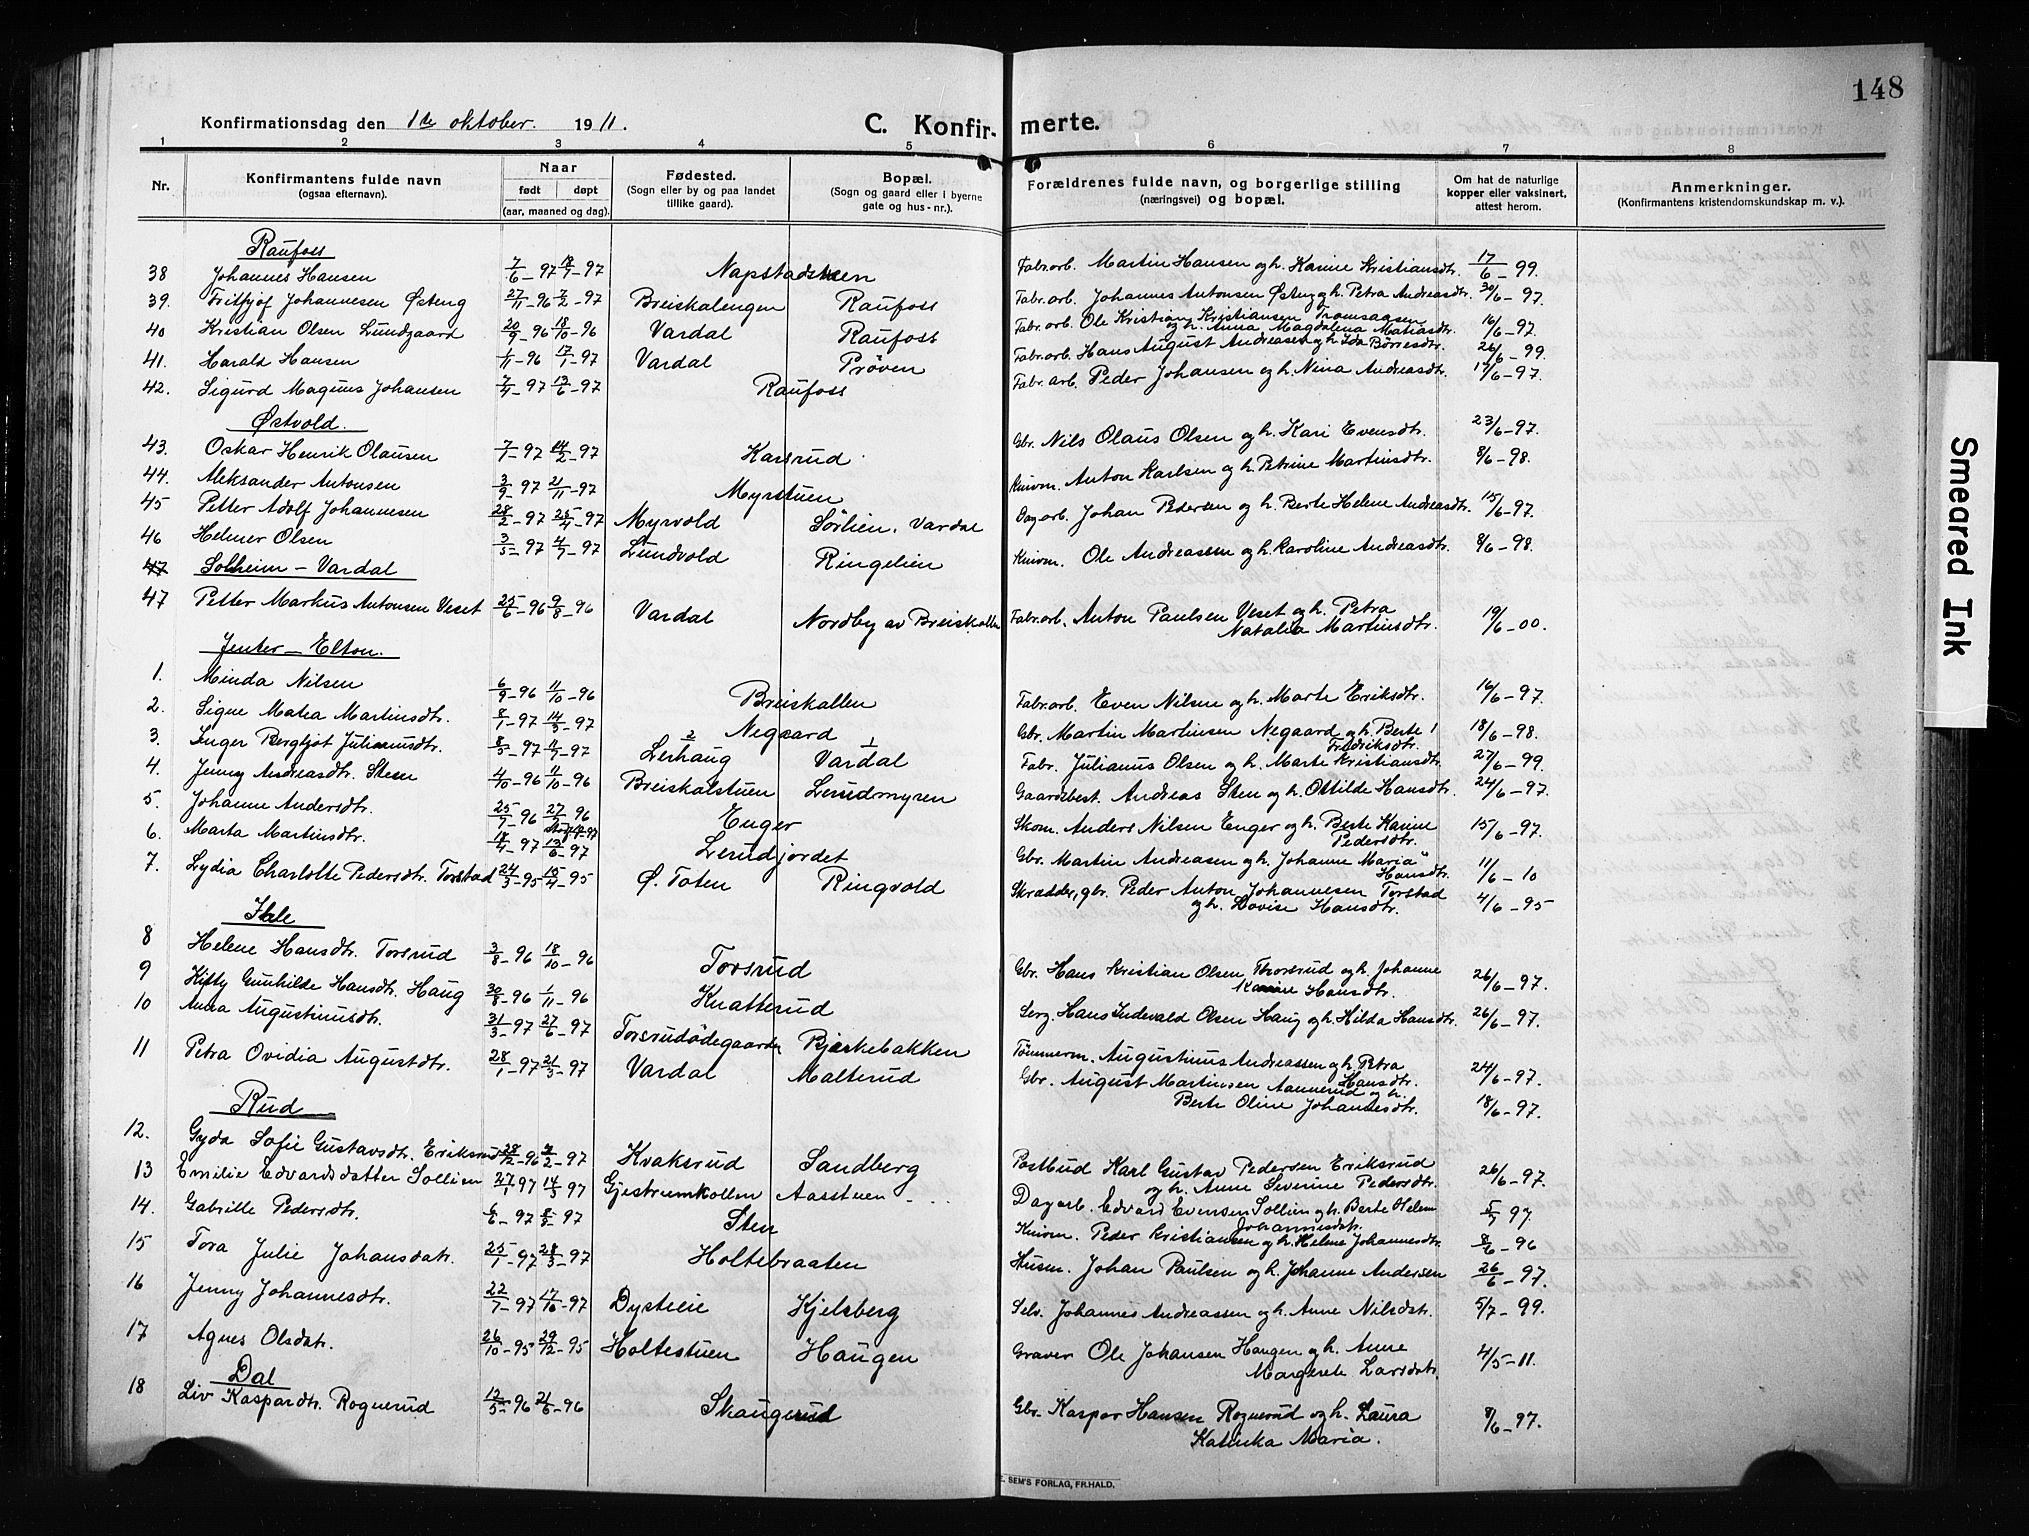 148
Konfirmationsdag den 1ste oktober. 1911.
C. Konfirmerte.
1 2 3 4 5 6 7 8
Nr. Konfirmantens fulde navn (ogsaa efternavn). Naar født døpt (aar, maaned og dag). Fødested. (Sogn eller by og paa landet tillike gaard). Bopæl. (Sogn og gaard eller i byerne gate og hus-nr.). Forældrenes fulde navn, og borgerlige stilling (næringsvei) og bopæl. Om hat de naturlige kopper eller vaksinert, attest herom. Anmerkninger. (Konfirmantens kristendomskundskap m. v.).
Raufoss
38 Johannes Hansen 7/6-97 Napstadstuen Fabr.arb. Martin Hansen og h. Karine Kristiansdtr. 17/6-99.
39. Fritfjof Johannesen Østeng 27/11-96 7/2-97 Breiskalengen Raufoss Fabr.arb. Johannes Antonsen Østeng og h. Petra Andreasdtr. 30/6-97.
40 Kristian Olsen Lundgaard 20/9-96 18/10-96 Vardal Raufoss Fabr.arb. Ole Kristian Kristiansen Tromsaasen og h. Anna Magdalena Matiasdtr. 16/6-97.
41. Harald Hansen 1/11-96 17/1-97 Vardal Prøven Fabr.arb. Hans August Andreasen og h. Ida Børresdtr. 26/6-99.
42. Sigurd Magnus Johansen 7/4-97 13/6-97 Raufoss Fabr.arb. Peder Johansen og h. Nina Andreasdtr. 17/6-97.
Østvold.
43. Oskar Henrik Olausen 7/1-97 14/2-97 Karsrud Gbr. Nils Olaus Olsen og h. Kari Evensdtr. 23/6-97.
44. Aleksander Antonsen 3/9-97 21/11-97 Myrstuen Knivm. Anton Karlsen og h. Petrine Martinsdtr. 8/6-98.
45 Petter Adolf Johannesen 28/2-97 25/4-97 Myrvold Sørlien, Vardal Dagarb. Johan Pedersen og h. Berte Helene Andreasdtr. 15/6-97.
46 Helmer Olsen 3/5-97 4/7-97 Lundvold Ringelien Knivm. Ole Andreassen og h. Karoline Andreasdtr. 8/6-98.
47 Solheim - Vardal
47 Petter Markus Antonsen Veset 25/6-96 9/8-96 Vardal Nordby av Breiskallen Fabr.arb. Anton Paulsen Veset og h. Petra Natalia Martinsdtr. 19/6-00.
Jenter - Elton.
1. Minda Nilsen 6/9-96 11/10-96 Breiskallen Fabr.arb. Even Nilsen og h. Marte Eriksdtr. 16/6-97.
2. Signe Matea Martinsdtr. 8/1-97 14/3-97 Negaard Gbr. Martin Martinsen Negaard og h. Berte Fredriksdtr. 18/6-98.
3. Inger Bergljot Juliannsdtr. 8/5-97 Lerhaug Vardal Fabr. Julianus Olsen og h. Marte Kristiansdtr. 27/6-99.
4. Jenny Andreasdtr. Sten 4/10-96 11/10-96 Breiskalstuen Lerudmyren Gaardsbest. Andreas Sten og h. Ottilde Hansdtr. 24/6-97.
5. Johanne Andersdtr. 25/7-96 27/-96 Enger Skom. Anders Nilsen Enger og h. Berte Karine Pedersdtr. 15/6-97.
6. Marta Martinsdtr. 4/4-97 13/6-97 Lerudjordet Gbr. Martin Andreasen og h. Johanne Maria Hansdtr. 11/6-10
7. Lydia Charlotte Pedersdtr. Torstad 24/3-95 15/4-95 Ø. Toten Ringvold Skrædder, gbr. Peder Anton Johannesen Torstad og h. Lovise Hansdtr. 4/6-95
Ihle
8 Helene Hansdtr. Torsrud 3/8-96 18/10-96 Torsrud Gbr. Hans Kristian Olsen Thorsrud og h. Johanne Karine Hansdtr. 26/6-97.
9 Kitty Gunhilde Hansdtr. Haug 30/8-96 1/11-96 Knatterud Serg. Hans Indevald Olsen Haug og h. Hilda Hansdtr. 26/6-97.
10 Anna Augustinusdtr. 31/3-97 27/6-97 Torsrudødegaarden Bjerkebakken Tømmerm. Augustinus Andreassen og h. Petra Hansdtr. 24/6-97.
11 Petra Ovidia Augustdtr. 28/1-97 21/3-97 Vardal Malterud Gbr. August Martinsen Aannerud og h. Berte Oline Johannesdtr. 18/6-97.
Rud
12. Gyda Sofie Gustavsdtr. Eriksrud 29/12-96 7/2-97 Kvaksrud Sandberg Postbud Karl Gustav Pedersen Eriksrud og h. Anne Severine Pedersdtr. 26/6-97.
13 Emilie Edvardsdatter Sollien 27/1 97 14/3 97 Gjestrumkollen Aasstuen Dagarb. Edvard Evensen Sollien og h. Berte Helene Johannesdtr. 5/7 97.
14. Gabrille Pedersdtr. 6/6-97 8/5-97 Sten Knivm. Peder Kristiansen og h. Helene Johannesdtr. 8/6-96
15 Tora Julie Johansdatr. 25/1-97 28/3-97 Holtebraaten Husm. Johan Paulsen og h. Johanne Andersen 26/6-97.
16 Jenny Johannesdtr. 22/7-97 17/10-97 Dysteeie Kjelsberg Selv. Johannes Andreassen og h. Anne Nilsdtr. 5/7-99.
17 Agnes Olsdatr. 26/10-95 29/12-95 Holtestuen Haugen Graver Ole Johansen Haugen og h. Anne Margrete Larsdatr. 4/5-11.
Dal
18 Liv Kaspardtr. Rognerud 12/5-96 21/6-96 Skaugerud Gbr. Kaspar Hansen Rognerud og h. Laura Katinka Maria. 8/6-97.
E. SEM'S FORLAG, FR.HALD.
Smeared Ink